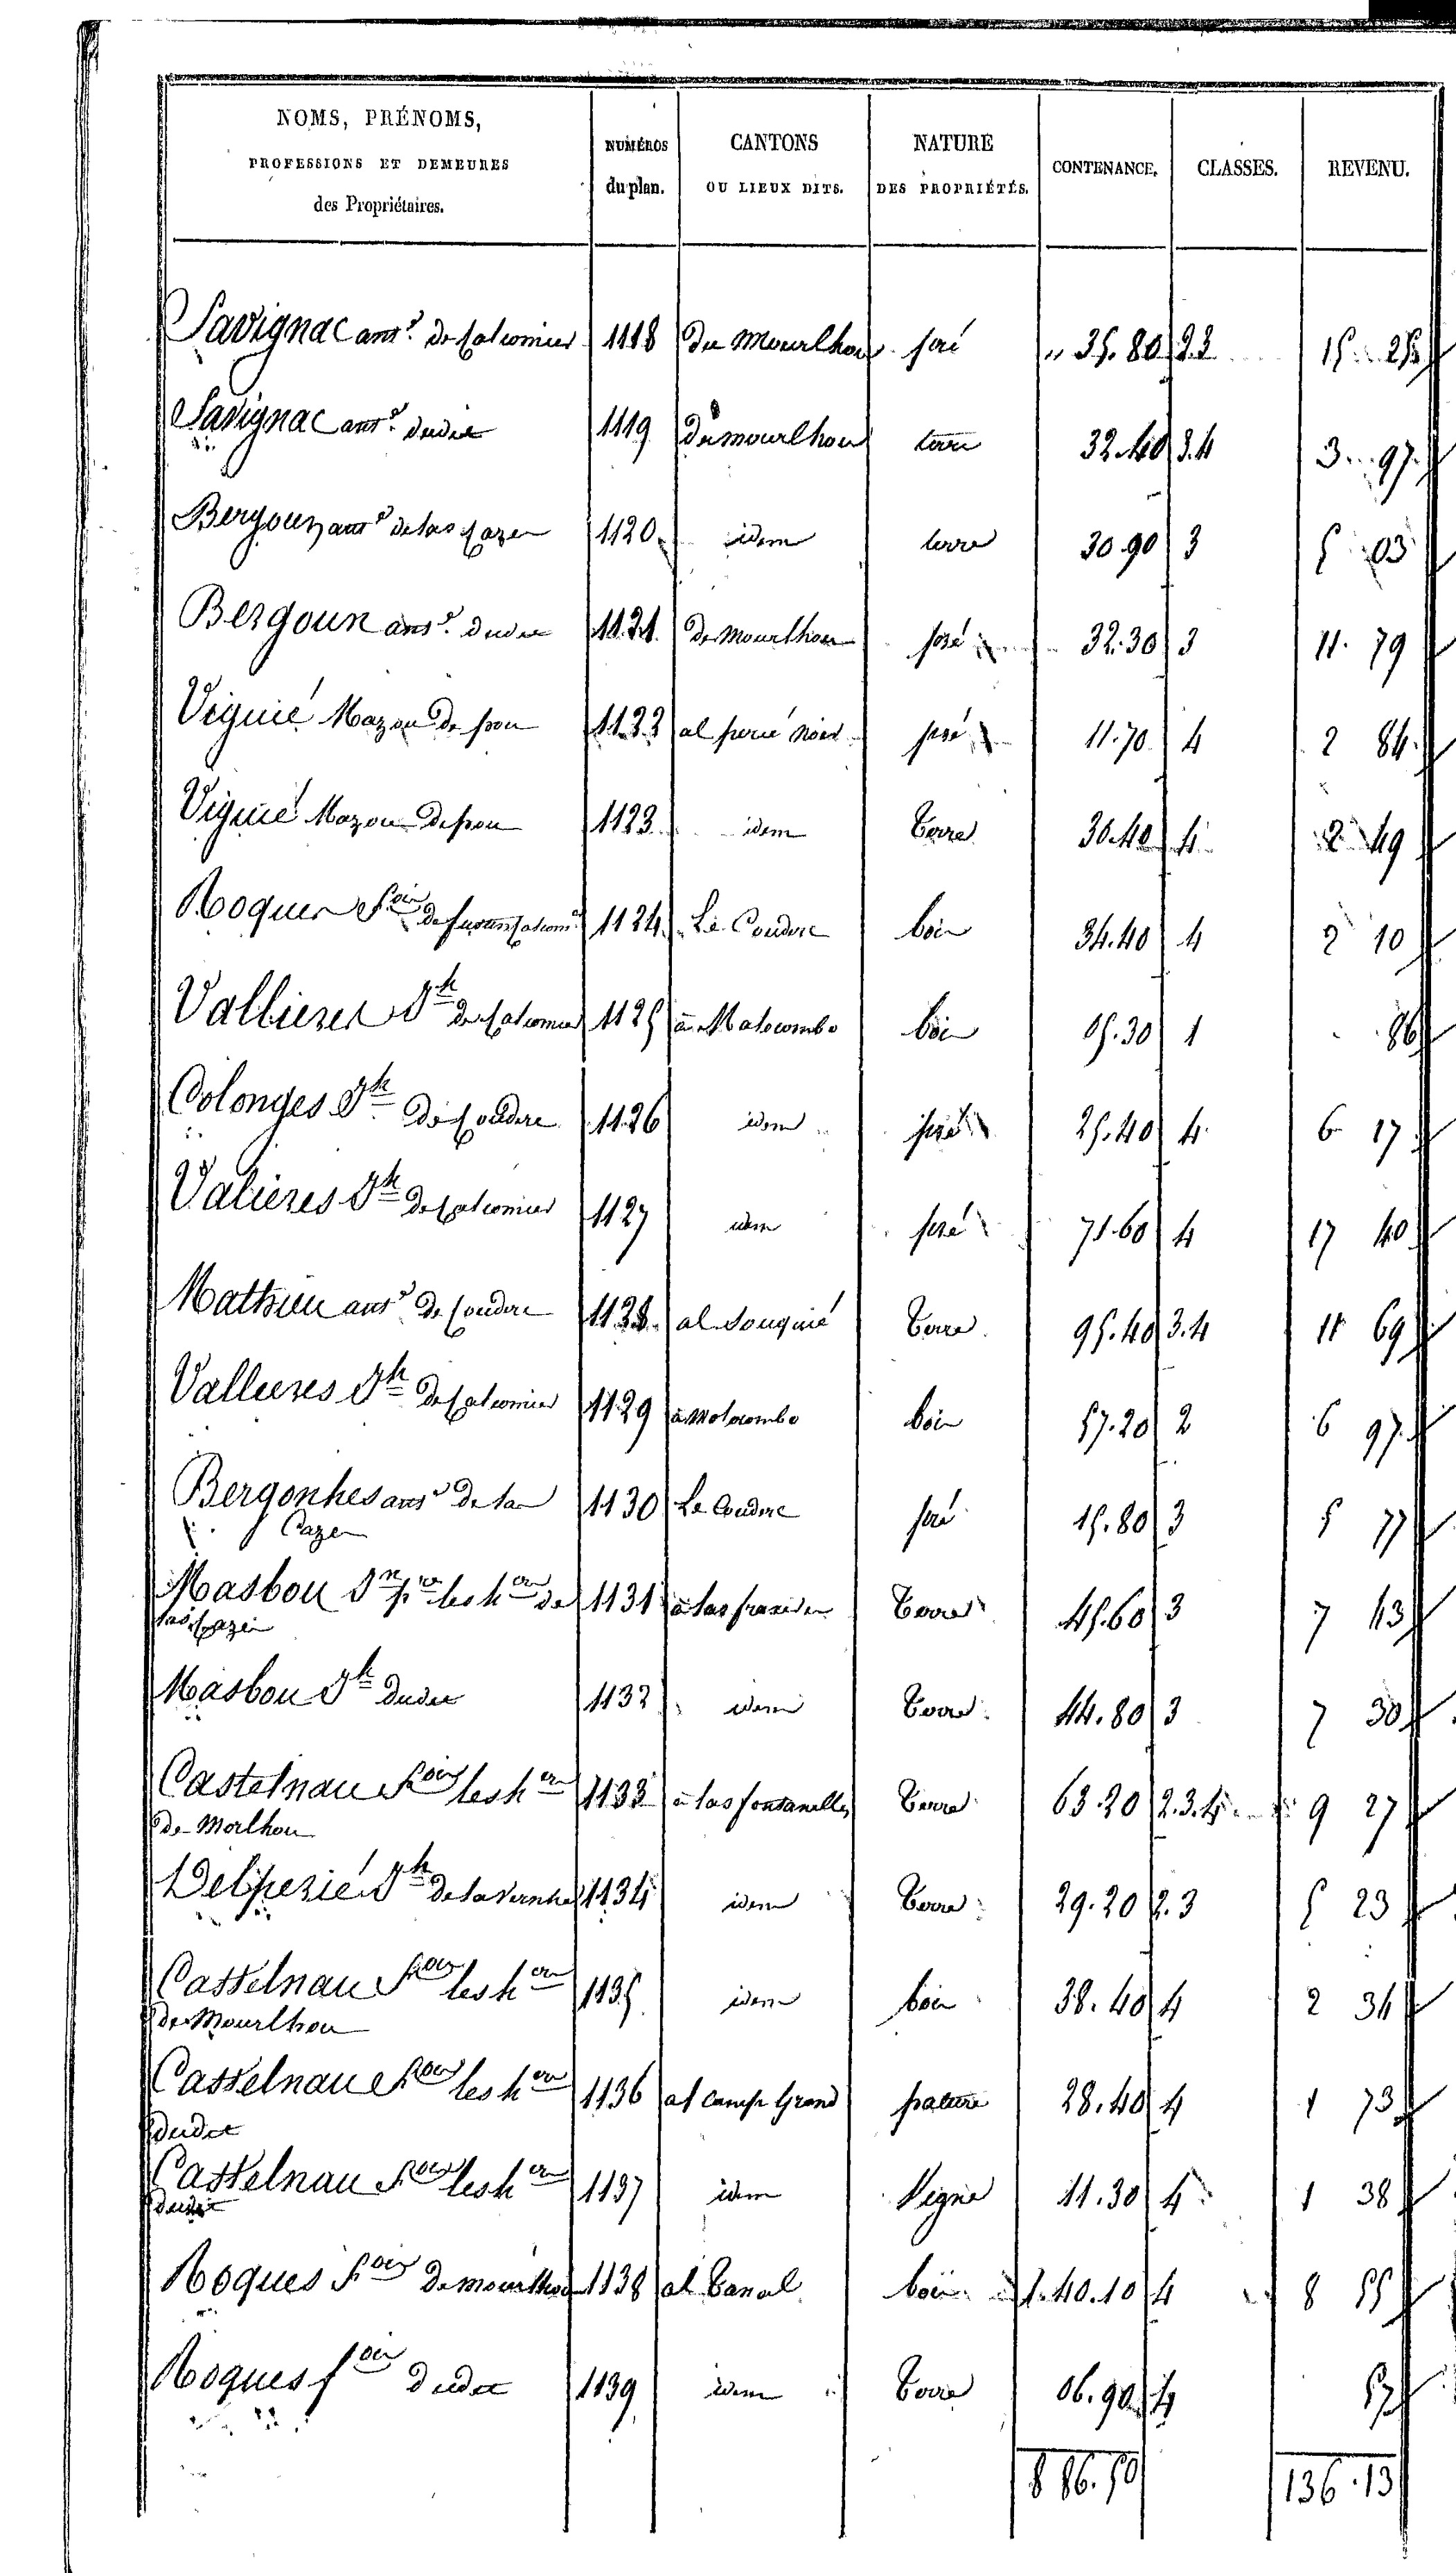 NOMS, PRÉNOMS,
PROFESSIONS ET DEMEURES
des Propriétaires.
NUMÉROS
du plan.
CANTONS
OU LIEUX DITS.
NATURE
DES PROPRIÉTÉS.
CONTENANCE.
CLASSES.
REVENU.
Savignac ant.e de Calcomier 1118 de Mourlhou pré " 35.80 2.3 15 25
Savignac ant.e dudit 1119 de mourlhou terre 32.40 3.4 3 97
Bergoun ant.e de las Cazes 1120 idem terre 30.90 3 5 03
Bergoun ant.e dudit 1121 de Mourlhou pré 32.30 3 11 79
Viguié Mazou de 1122 al perié noir pré 11.70 4 2 84
Viguié Mazou de 1123 idem Terre 30.40 4 2 49
Roques fois de 1124 Le Couderc bois 34.40 4 2 10
Vallieres Jh de Calcomier 1125 à Malecombo bois 05.30 1 86
Colonges Jh de Couderc 1126 idem pré 25.40 4 6 17
Valieres Jh de Calcomier 1127 idem pré 71.60 4 17 40
Mathieu ant.e de Couderc 1128 al Souquié Terre 95.40 3.4 11 69
Vallieres Jh de Calcomier 1129 à Malocombo bois 57.20 2 6 97
Bergonhes ant.e de las 1130 Le Couderc pré 15.80 3 5 77
Cazes
Masbou Jn pre les hers de 1131 à las Terre 45.60 3 7 43
las Cazes
Masbou Jh dudit 1132 idem Terre 44.80 3 7 30
Castelnau fois les hers 1133 à las fontanelles Terre 63.20 2.3.4 9 27
de Morlhou
Delperié Jh de la Vernhe 1134 idem Terre 29.20 2.3 5 23
Castelnau fois les hers 1135 idem bois 38.40 4 2 34
de Mourlhou
Castelnau fois les hers 1136 al camp Grand pature 28.40 4 1 73
dudit
Castelnau fois les hers 1137 idem Vigne 11.30 4 1 38
dudit
Roques fois de mourlhou 1138 al Canal bois 1.40.10 4 8 55
Roques fois dudit 1139 idem Terre 06.90 4 57
8 86.50 136.13